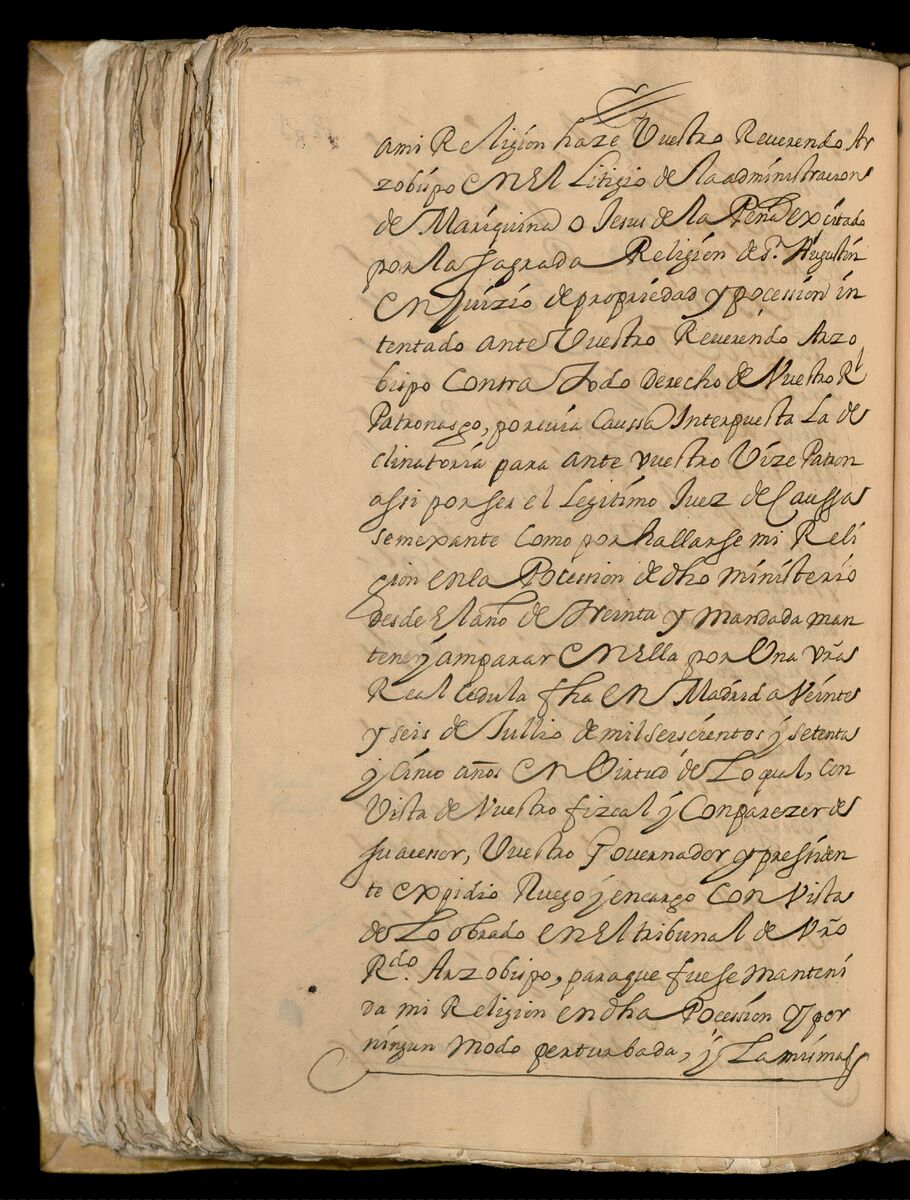 ami Religion haze Vuestro Reverendo Ar
zobispo en El Litigio de la administracion
de Mariquina o Jesus de la Peña excitado
por la sagrada Religion de Sn. Augustin
en juizio de propriedad y pocession in
tentado ante Vuestro Reverendo Arzo
bispo Contra todo Derecho de Vuestro Rl
Patronasgo, por cuia Caussa Interpuesta La de
clinatoria para ante vuestro Vize Patron
assi por ser el Legitimo Juez de Caussas
semexante Como por hallarse mi Reli
gion en la Pocession de dho ministerio
desde El año de treinta y Mandada man
tener y amparar en Ella por Una vra
Real Cedula fha en Madrid a Veinte
y seis de Jullio de mil seiscientos y setenta
y Cinco años en Virtud de Lo qual, Con
Vista de Vuestro fizcal y Con parezer de
su acesor, Vuestro Governador y presiden
te expidio Ruego y encargo Con Vista
de Lo obrado en El tribunal de Vro
Rdo. Arzobispo, para que fuese manteni
da mi Religion en dha Pocession y por
ningun modo perturbada, y La misma